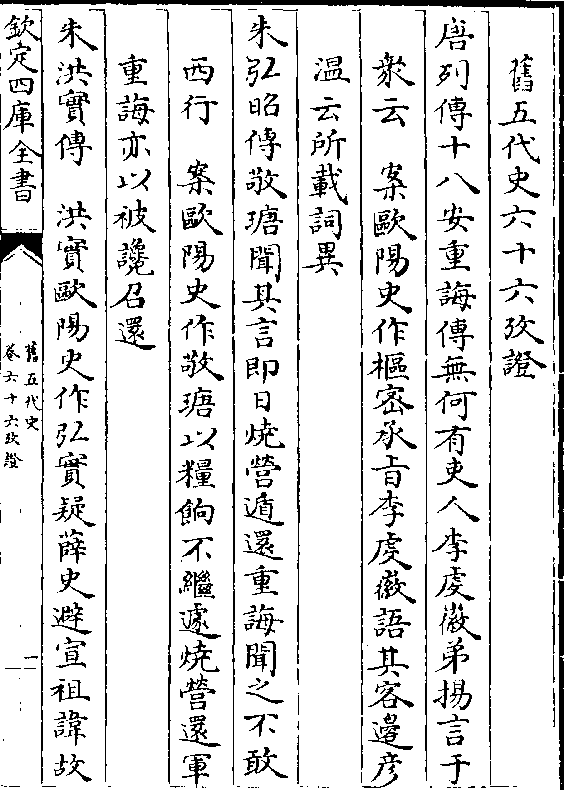 舊五代史六十六攷證
唐列傳十八安重誨傳無何有吏人李虔徽弟揚言于
衆云　案歐陽史作樞密承旨李虔徽語其客邊彦
温云所載詞異
朱弘昭傳敬瑭聞其言即日燒營遁還重誨聞之不敢
西行　案歐陽史作敬瑭以糧餉不繼遽燒營還軍
重誨亦以被讒召還
朱洪實傳　洪實歐陽史作弘實疑薛史避宣祖諱故
欽定四庫全書
舊五代史
卷六十六攷證
一